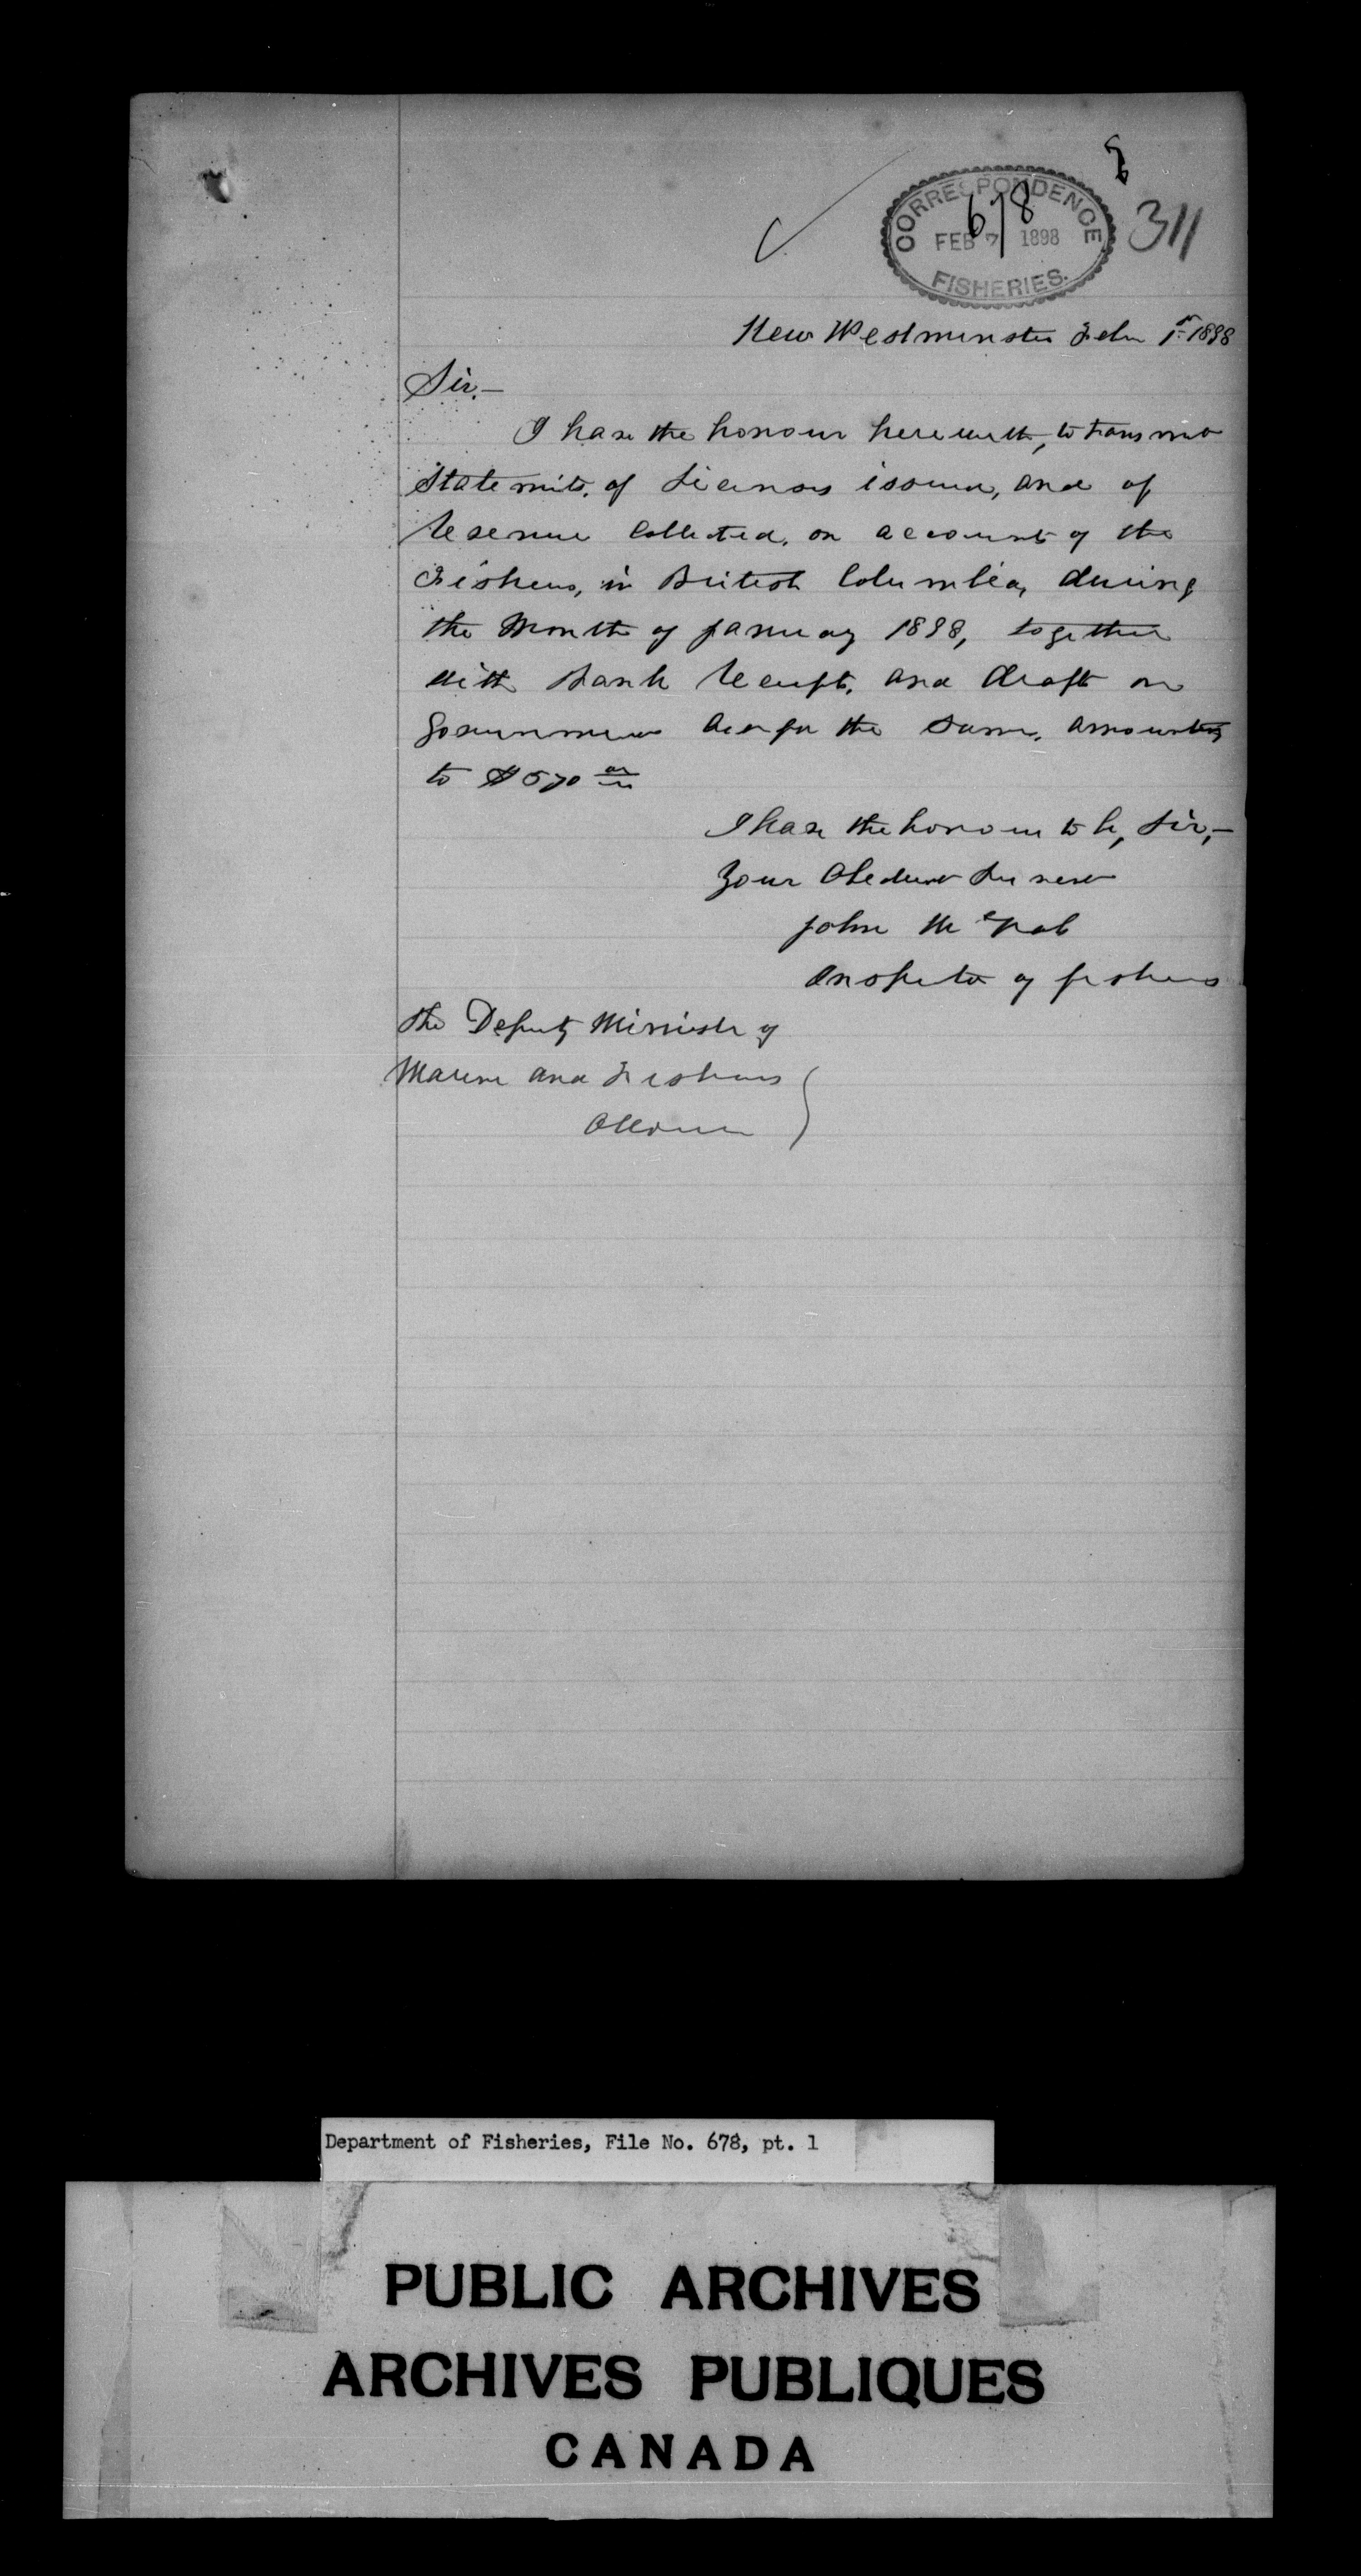 678
311
CORRESPONDENCE
FEB 7 1898
FISHERIES.
New Westminster Feby 1st 1898
Sir,—
I have the honour herewith, to transmit
statements, of Licenses issued, and of
Revenue collected, on account of the
Fisheries, in British Columbia, during
the Month of January 1898, together
with Bank Receipt, and Draft on
Government for the same, amounting
to $570
I have the honour to be, Sir,—
Your Obedient Servant
John McNab
Inspector of fisheries
The Deputy Minister of
Marine and Fisheries
Ottawa
Department of Fisheries, File No. 678, pt. 1
PUBLIC ARCHIVES
ARCHIVES PUBLIQUES
CANADA